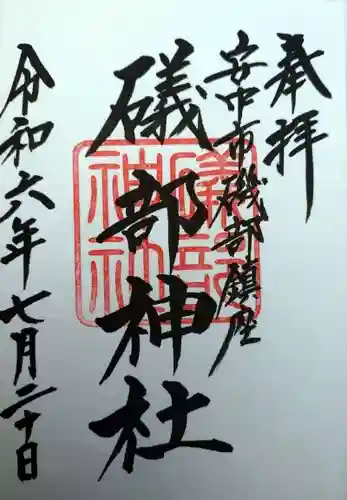 奉拝
安中市磯部鎮座
礒部神社
令和六年七月二十日